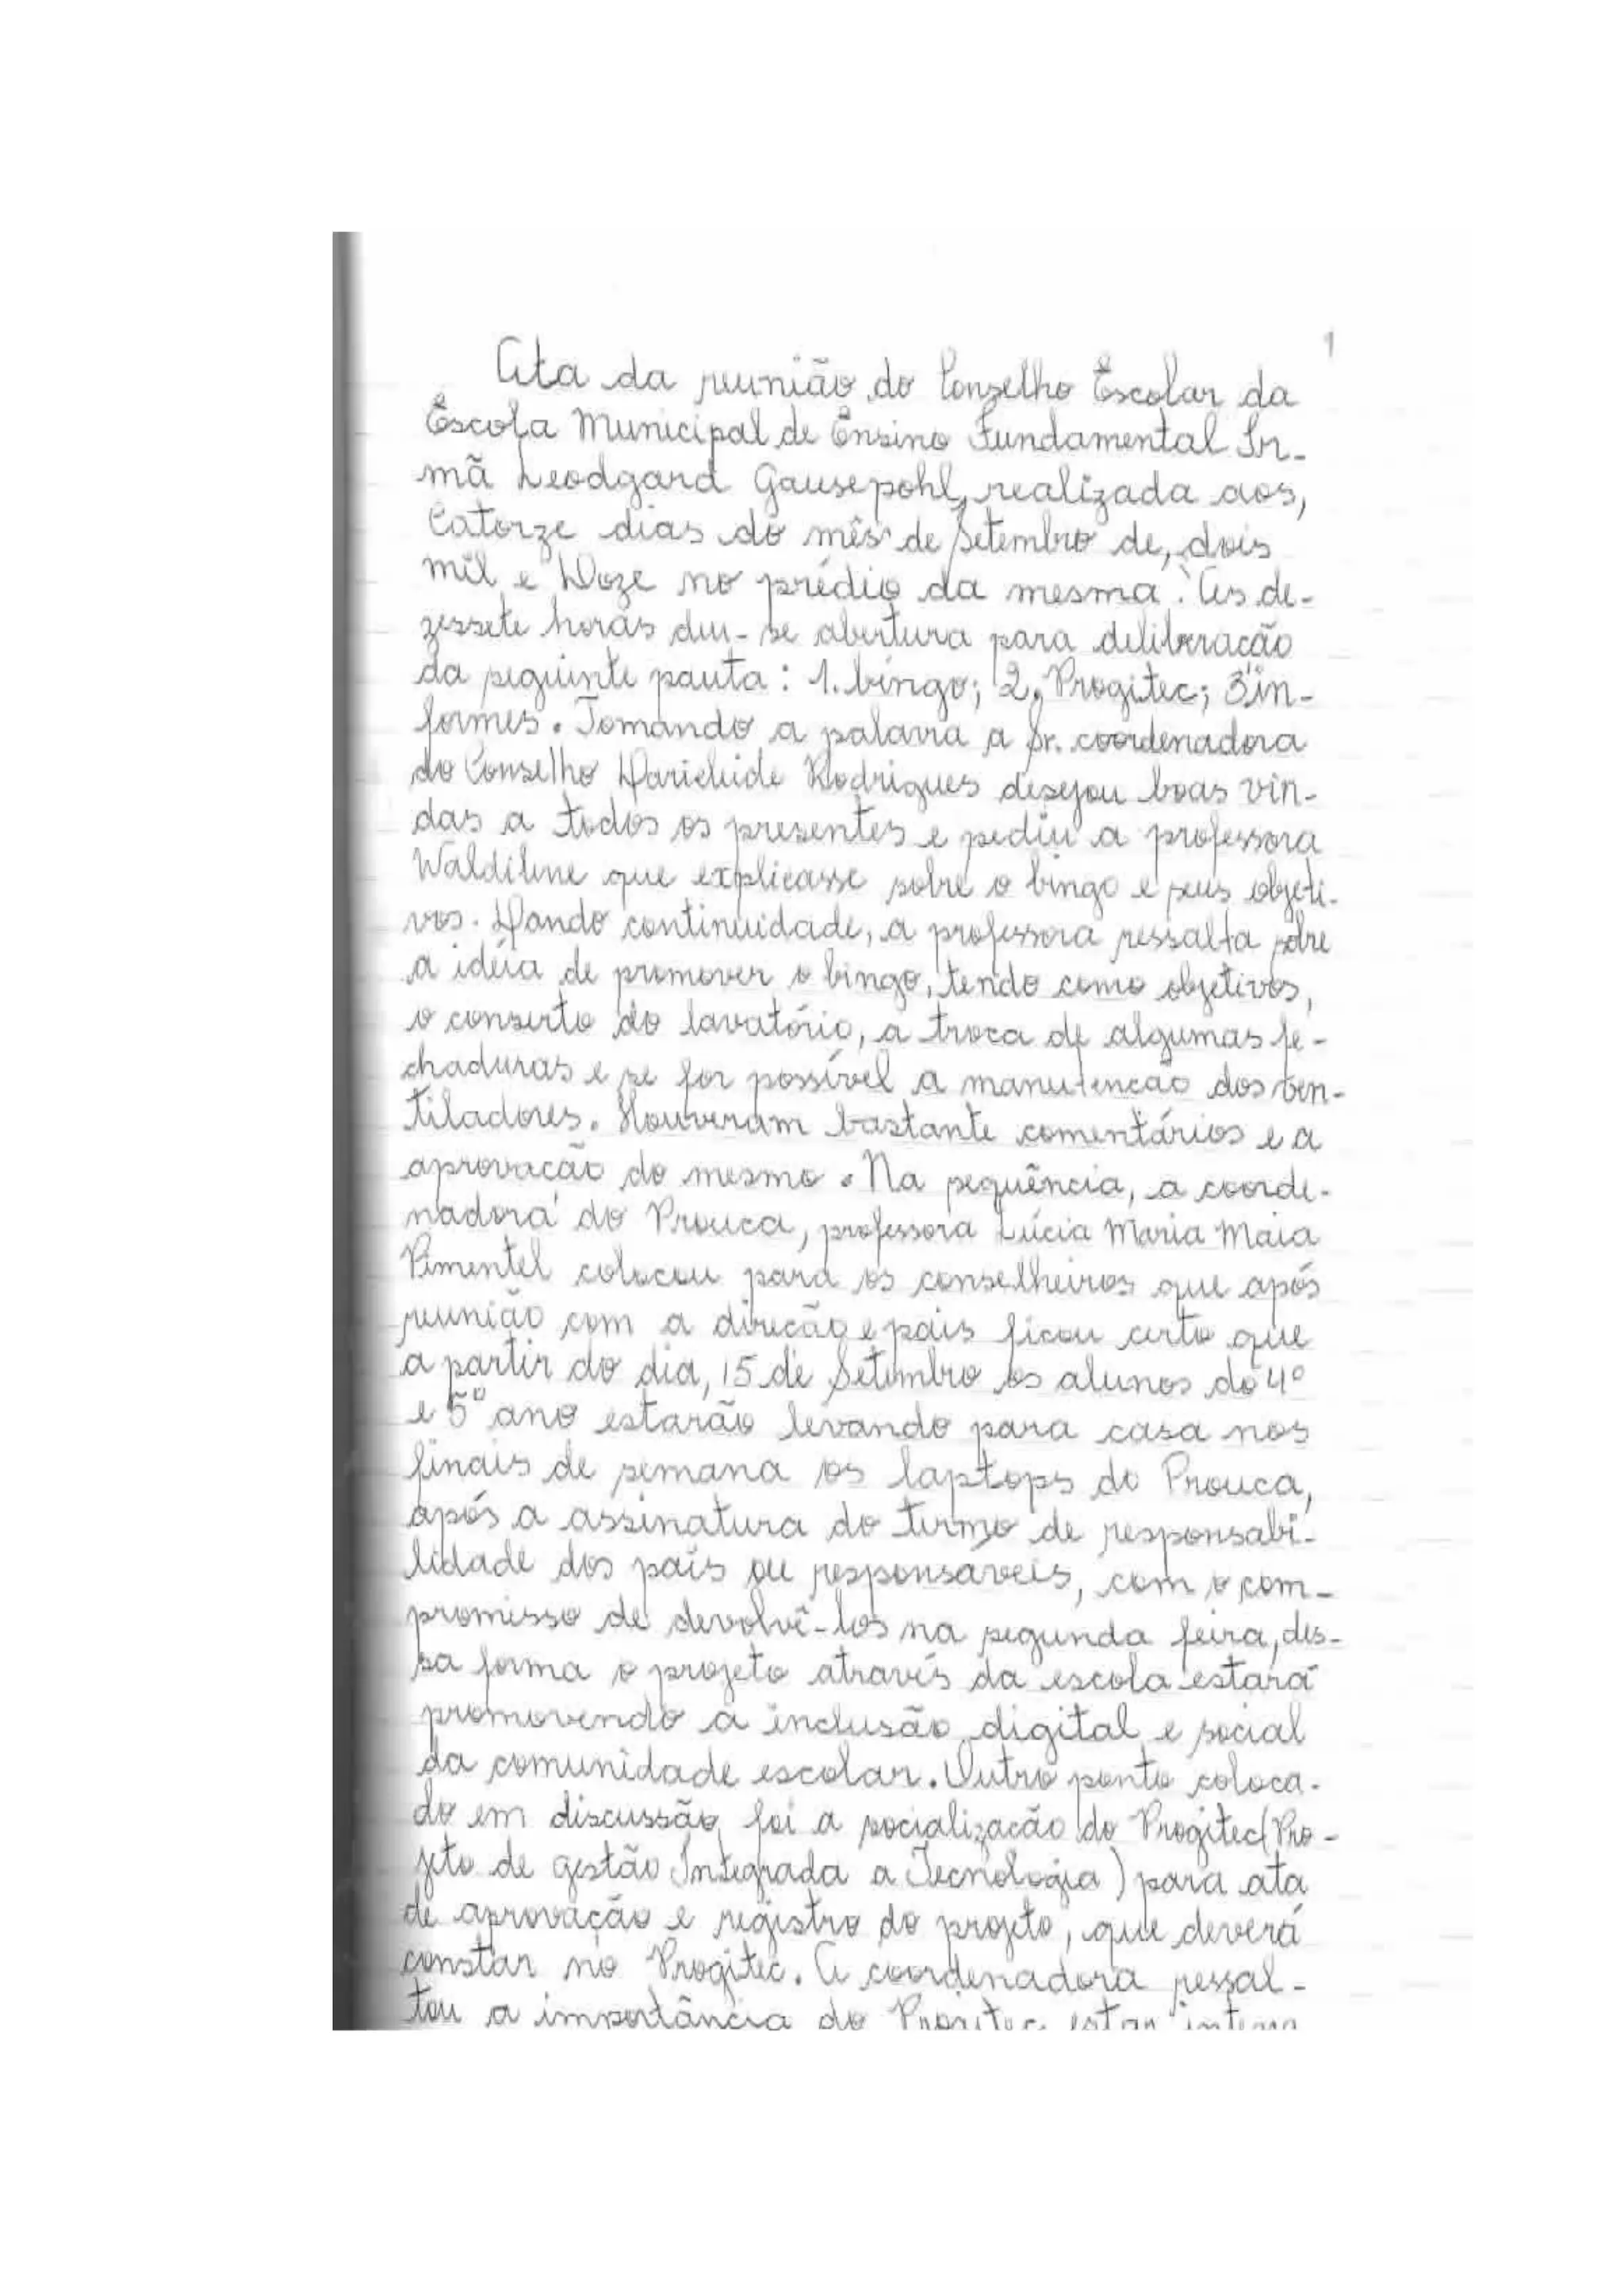 1
Ata da reunião do Conselho Escolar da
Escola Municipal de Ensino Fundamental Ir-
mã Leodgard Gausepohl, realizada aos,
Catorze dias do mês de Setembro de, dois
mil e Doze no prédio da mesma. Às de-
zessete horas deu-se abertura para deliberação
da seguinte pauta: 1. bingo; 2. Progitec; 3. in-
formes. Tomando a palavra a Sr. coordenadora
do Conselho Daricleide Rodrigues desejou boas vin-
das a todos os presentes e pediu a professora
Waldilene que explicasse sobre o bingo e seus objeti-
vos. Dando continuidade, a professora ressalta sobre
a idéia de promover o bingo, tendo como objetivos,
o conserto do lavatório, a troca de algumas fe-
chaduras e se for possível a manutencão dos ven-
tiladores. Houveram bastante comentários e a
aprovacão do mesmo. Na sequência, a coorde-
nadora do Prouca, professora Lúcia Maria Maia
Pimentel colocou para os conselheiros que após
reunião com a direcão e pais ficou certo que
a partir do dia, 15 de Setembro os alunos do 4º
e 5º ano estarão levando para casa nos
finais de semana os laptops do Prouca,
após a assinatura do termo de responsabi-
lidade dos pais ou responsáveis, com o com-
promisso de devolvê-los na segunda feira, des-
sa forma o projeto através da escola estará
promovendo a inclusão digital e social
da comunidade escolar. Outro ponto coloca-
do em discussão foi a socializacão do Progitec (Pro-
jeto de gestão Integrada a Tecnologia) para ata
de aprovação e registro do projeto, que deverá
constar no Progitec. A coordenadora ressal-
tou a importância do Progitec estar